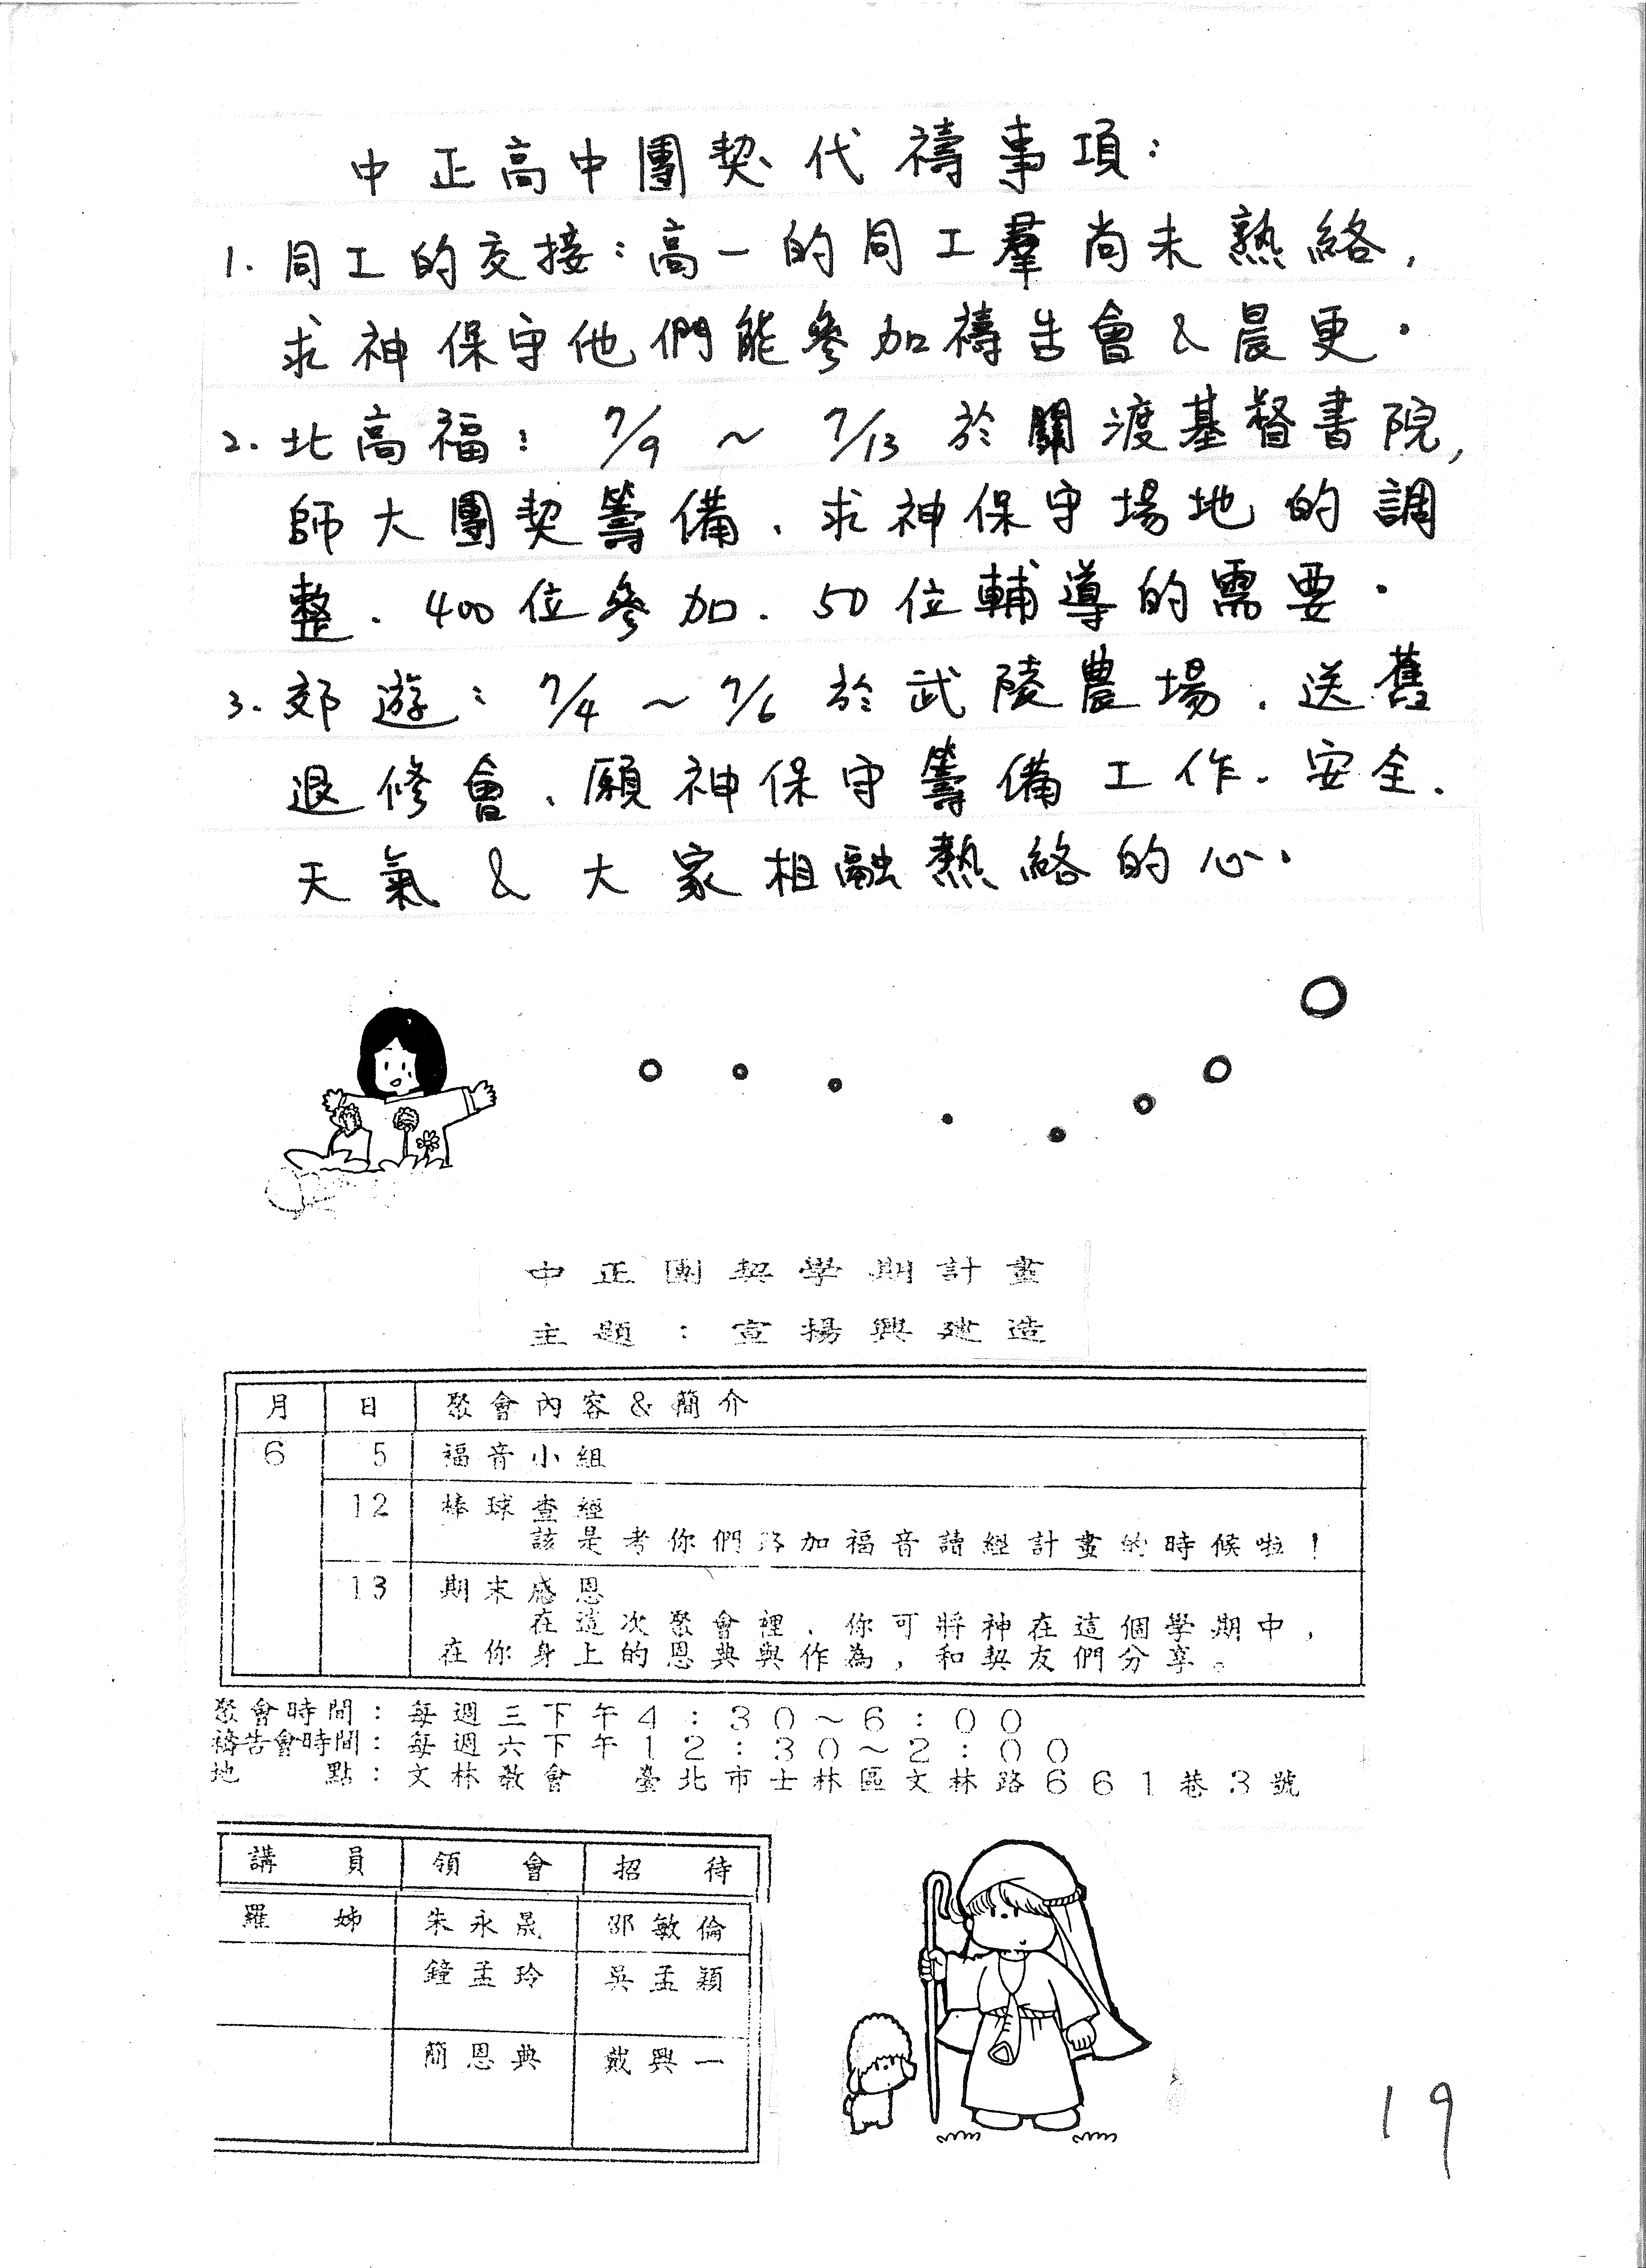 中正高中團契代禱事項：
1. 同工的交接：高一的同工羣尚未熟絡，
求神保守他們能參加禱告會&晨更．
2. 北高福：7/9 ~ 7/13 於關渡基督書院，
師大團契籌備、求神保守場地的調
整、400位參加、50位輔導的需要．
3. 郊遊：7/4 ~ 7/6 於武陵農場、送舊
退修會、願神保守籌備工作、安全、
天氣 & 大家相融熱絡的心．
中正團契學期計畫
主題：宣揚興建造
月 日 聚會內容&簡介
6 5 福音小組
12 棒球查經
該是考你們路加福音讀經計畫的時候啦！
13 期末感恩
在這次聚會裡，你可將神在這個學期中，
在你身上的恩典與作為，和契友們分享。
聚會時間：每週三下午4：30~6：00
禱告會時間：每週六下午12：30~2：00
地點：文林教會 臺北市士林區文林路661巷3號
講員 領會 招待
羅姊 朱永晟 邵敏倫
鐘孟玲 吳孟穎
簡恩典 戴興一
19